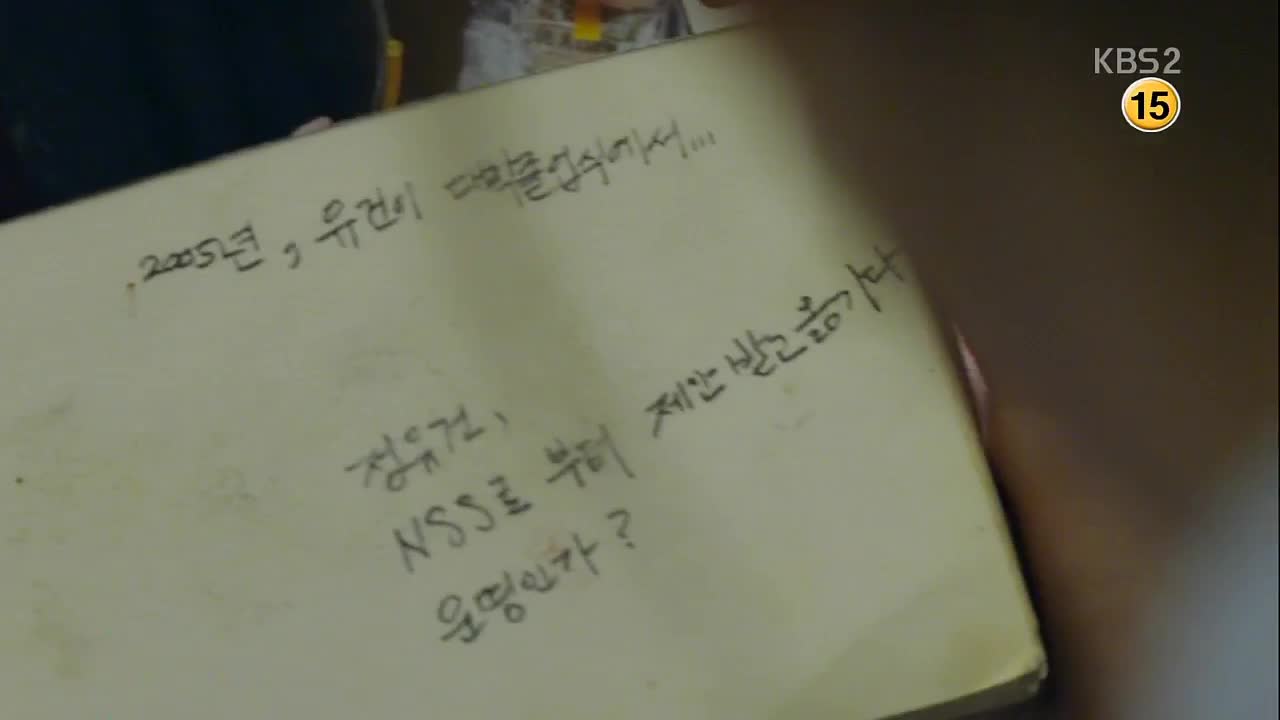 KBS2
15
2005년, 유건이 대학졸업식에서...
정유건,
NSS로 부터 제안 받고 옮기다
운명인가?